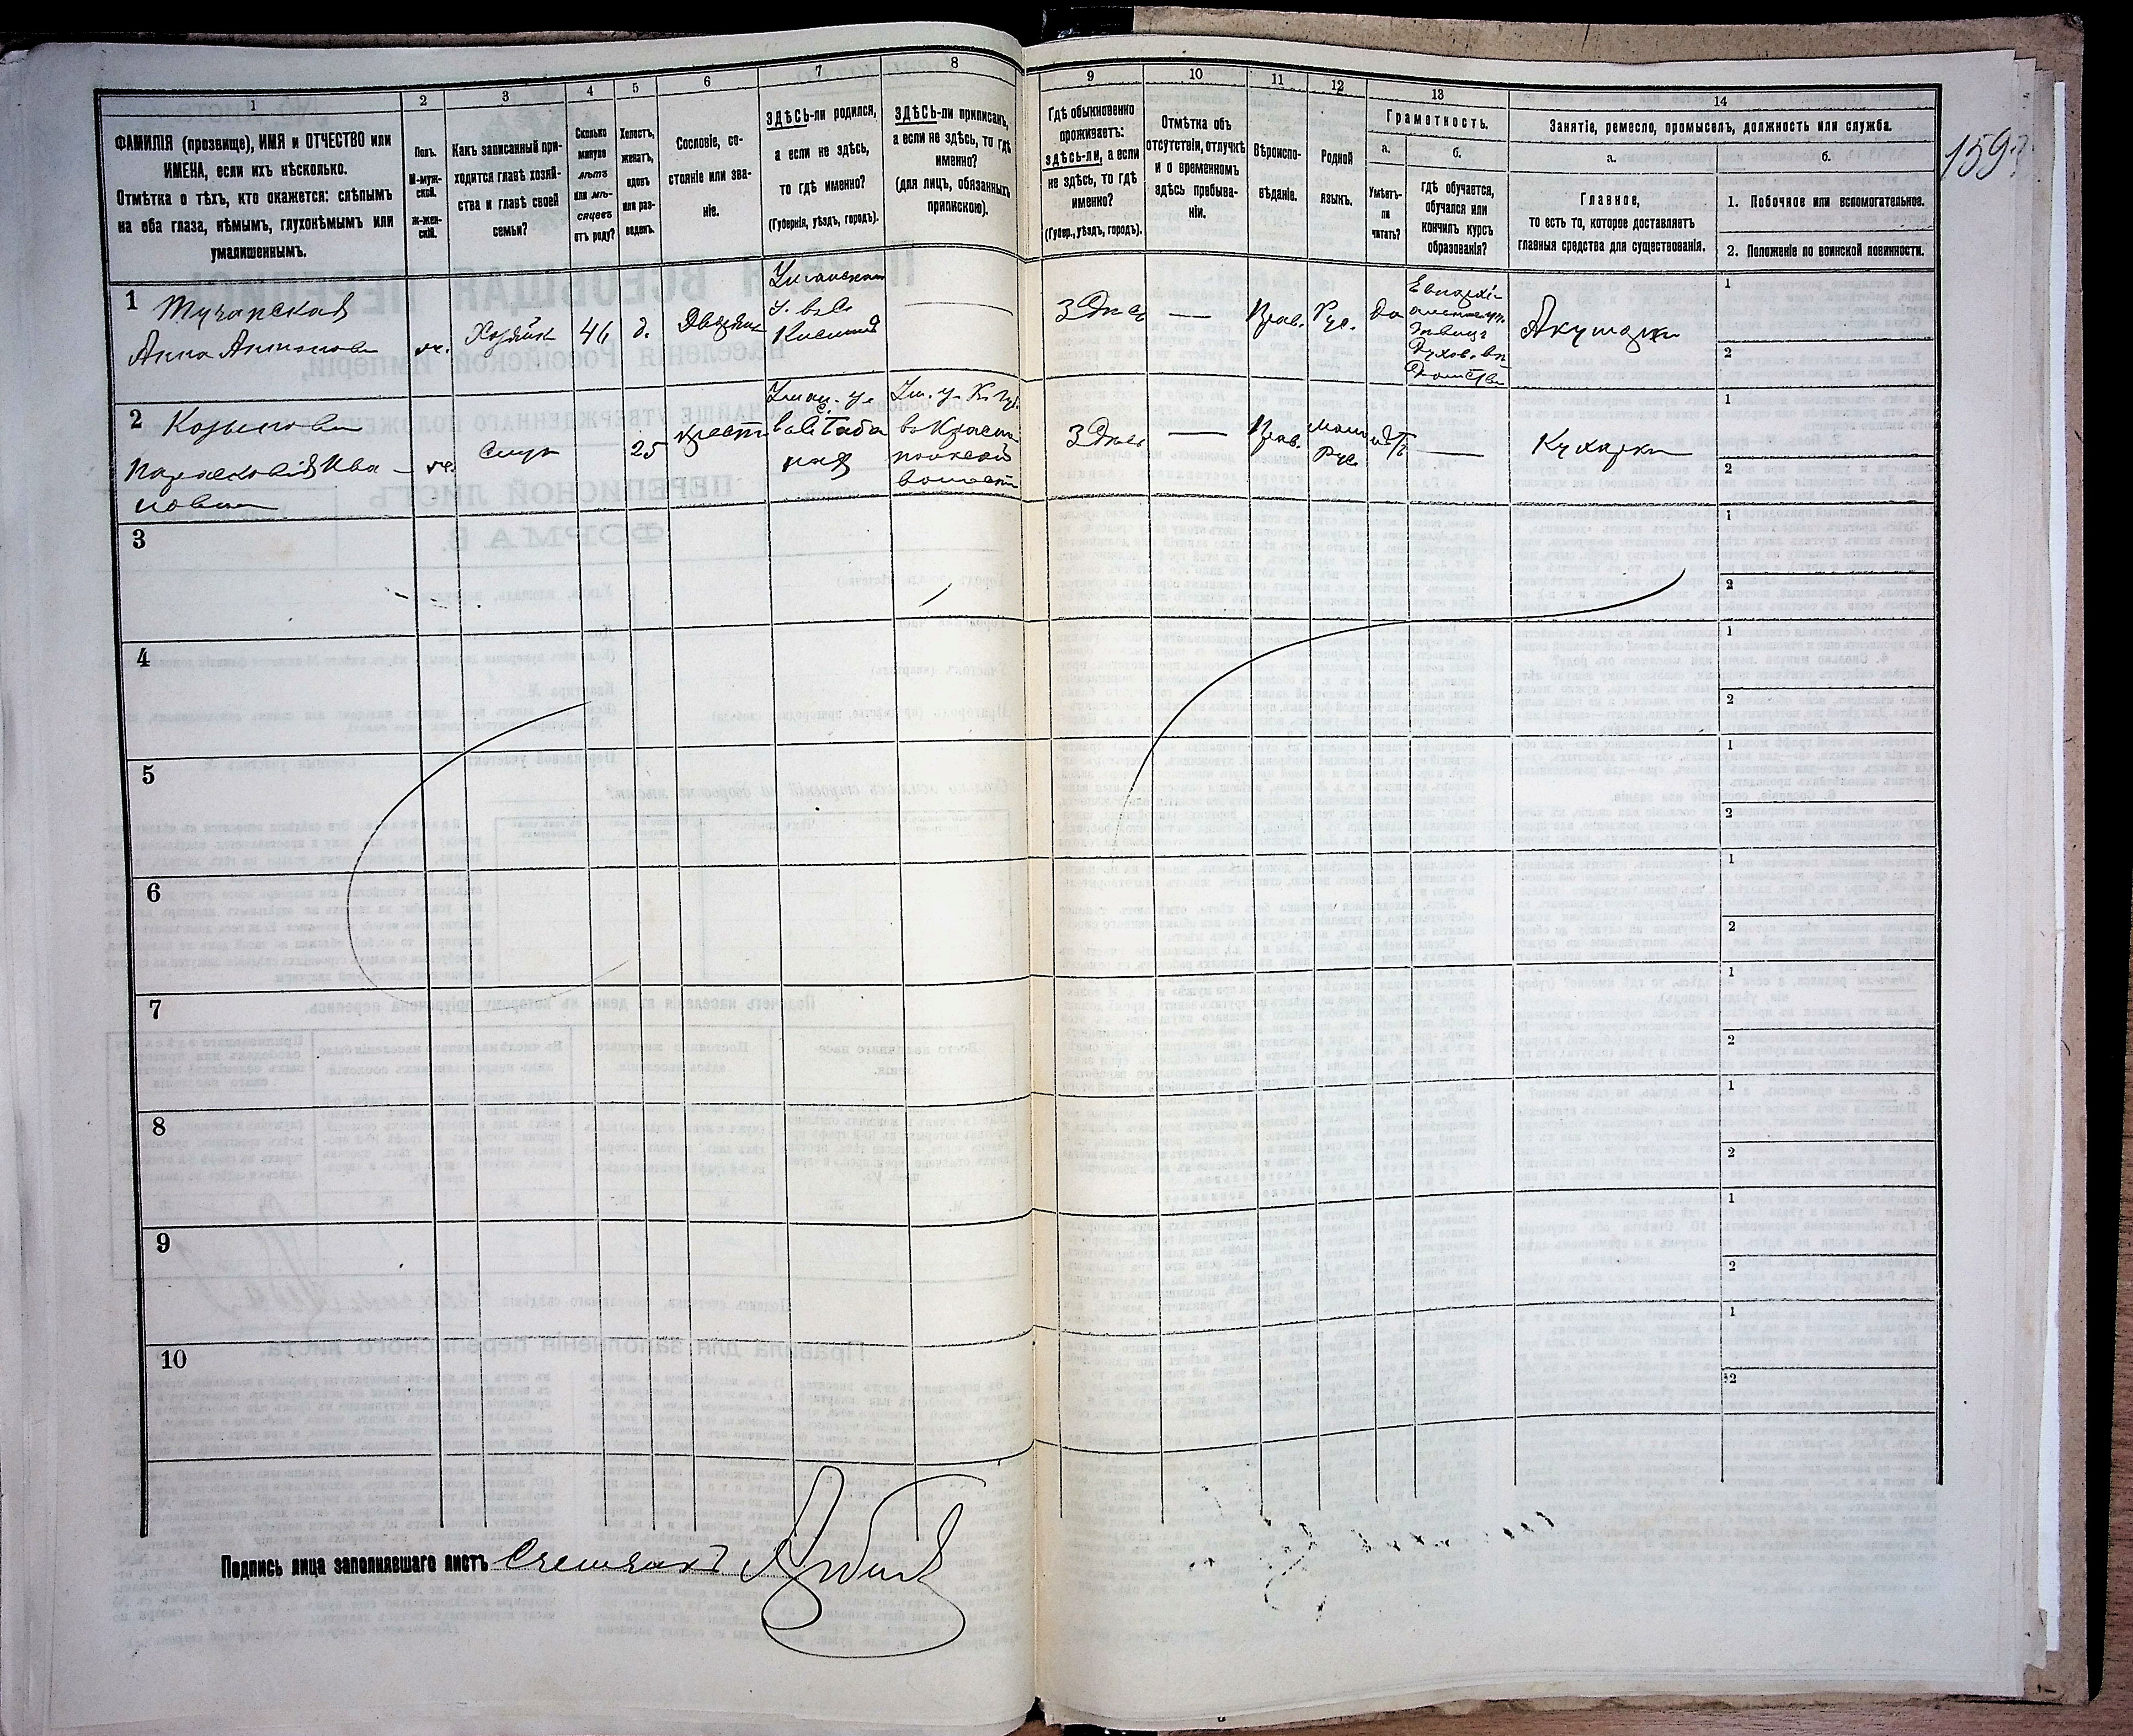 1
ФАМИЛІЯ (прозвище), ИМЯ и ОТЧЕСТВО или
ИМЕНА, если ихъ нѣсколько.
Отмѣтка о тѣхъ, кто окажется: слѣпымъ
на оба глаза, нѣмымъ, глухонѣмымъ или
умалишеннымъ.
2
Полъ.
М-муж-
ской.
Ж-жен-
скій.
3
Какъ записанный при-
ходится главѣ хозяй-
ства и главѣ своей
семьи?
4
Сколько
минуло
лѣтъ
или мѣ-
сяцевъ
отъ роду?
5
Холостъ,
женатъ,
вдовъ
или раз-
веденъ.
6
Сословіе, со-
стояніе или зва-
ніе.
7
ЗДѢСЬ-ли родился,
а если не здѣсь,
то гдѣ именно?
(Губернія, уѣздъ, городъ).
8
ЗДѢСЬ-ли приписанъ,
а если не здѣсь, то гдѣ
именно?
(для лицъ, обязанныхъ
припискою).
9
Гдѣ обыкновенно
проживаетъ:
здѣсь-ли, а если
не здѣсь, то гдѣ
именно?
(Губер., уѣздъ, городъ).
10
Отмѣтка объ
отсутствіи, отлучкѣ
и о временномъ
здѣсь пребыва-
ніи.
11
Вѣроиспо-
вѣданіе.
12
Родной
языкъ.
13
Грамотность.
а.
Умѣетъ-
ли
читать?
б.
гдѣ обучается,
обучался или
кончилъ курсъ
образованія?
14
Занятіе, ремесло, промыселъ, должность или служба.
а.
Главное,
то есть то, которое доставляетъ
главныя средства для существованія.
б.
1. Побочное или вспомогательное.
2. Положеніе по воинской повинности.
159
1
Анна Антонова
ж.
Хозяйк
46
д.
Дворян
Уманскаго
у.
—
Здѣсь
—
Прав.
Рус.
да
Акушерка
1
2
2
Парасковія Ива-
нова
ж.
Служ
25
крест
Уман. у.
Ум. у. К. губ.
волост
Здѣсь
—
Прав.
Мало
Рус.
нѣтъ
—
Кухарка
1
2
3
1
2
4
1
2
5
1
2
6
1
2
7
1
2
8
1
2
9
1
2
10
1
2
Подпись лица заполнявшаго листъ Счетчикъ